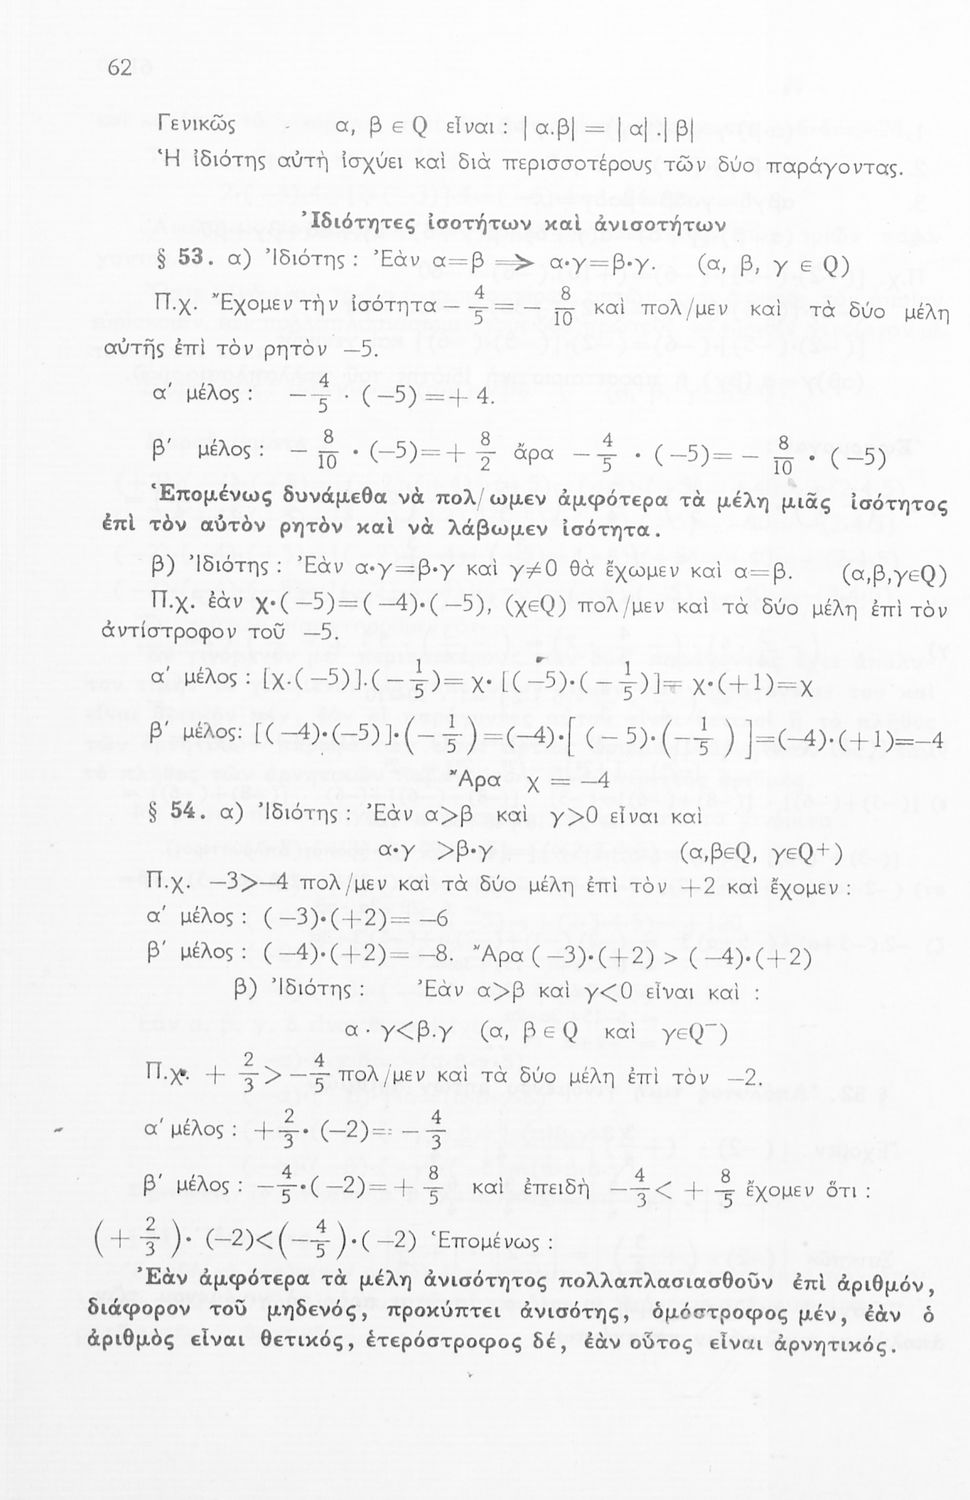 62
Γενικῶς - α, β ϵ Q εἶναι : | α.β| = | α| .| β|
Ἡ ἰδιότης αὐτὴ ἰσχύει καὶ διὰ περισσοτέρους τῶν δύο παράγοντας.
Ἰδιότητες ἰσοτήτων καὶ ἀνισοτήτων
§ 53. α) Ἰδιότης : Ἐὰν α=β ⇒ α·γ=β·γ. (α, β, γ ϵ Q)
Π.χ. Ἔχομεν τὴν ἰσότητα — 4/5 = — 8/10 καὶ πολ/μεν καὶ τὰ δύο μέλη
αὐτῆς ἐπὶ τὸν ρητὸν —5.
α′ μέλος : —4/5 · (—5) =+ 4.
β′ μέλος : — 8/10 · (—5)=+ 8/2 ἄρα —4/5 · (—5)= — 8/10 · (—5)
Ἑπομένως δυνάμεθα νὰ πολ/ωμεν ἀμφότερα τὰ μέλη μιᾶς ἰσότητος
ἐπὶ τὸν αὐτὸν ρητὸν καὶ νὰ λάβωμεν ἰσότητα.
β) Ἰδιότης : Ἐὰν α·γ=β·γ καὶ γ≠0 θὰ ἔχωμεν καὶ α=β. (α,β,γϵQ)
Π.χ. ἐὰν χ·(—5)=(—4)·(—5), (χϵQ) πολ/μεν καὶ τὰ δύο μέλη ἐπὶ τὸν
ἀντίστροφον τοῦ —5.
α′ μέλος : [χ.(—5)].(—1/5)= χ· [(—5)·(—1/5)]= χ·(+1)=χ
β′ μέλος: [(—4)·(—5)]·(—1/5)=(—4)·[ (—5)·(—1/5 ) ]=(—4)·(+1)=—4
Ἄρα χ = —4
§ 54. α) Ἰδιότης : Ἐὰν α>β καὶ γ>0 εἶναι καὶ
α·γ >β·γ (α,βϵQ, γϵQ⁺)
Π.χ. —3>—4 πολ/μεν καὶ τὰ δύο μέλη ἐπὶ τὸν +2 καὶ ἔχομεν :
α′ μέλος : (—3)·(+2)= —6
β′ μέλος : (—4)·(+2)= —8. Ἄρα (—3)·(+2) > (—4)·(+2)
β) Ἰδιότης : Ἐὰν α>β καὶ γ<0 εἶναι καὶ :
α · γ<β.γ (α, β ϵ Q καὶ γϵQ⁻)
Π.χ. + 2/3 > —4/5 πολ/μεν καὶ τὰ δύο μέλη ἐπὶ τὸν —2.
α′ μέλος : +2/3· (—2)= —4/3
β′ μέλος : —4/5·(—2)= + 8/5 καὶ ἐπειδὴ —4/3 < + 8/5 ἔχομεν ὅτι :
(+ 2/3 )· (—2)<(—4/5 )·(—2) Ἑπομένως :
Ἐὰν ἀμφότερα τὰ μέλη ἀνισότητος πολλαπλασιασθοῦν ἐπὶ ἀριθμόν,
διάφορον τοῦ μηδενός, προκύπτει ἀνισότης, ὁμόστροφος μέν, ἐὰν ὁ
ἀριθμὸς εἶναι θετικός, ἑτερόστροφος δέ, ἐὰν οὗτος εἶναι ἀρνητικός.